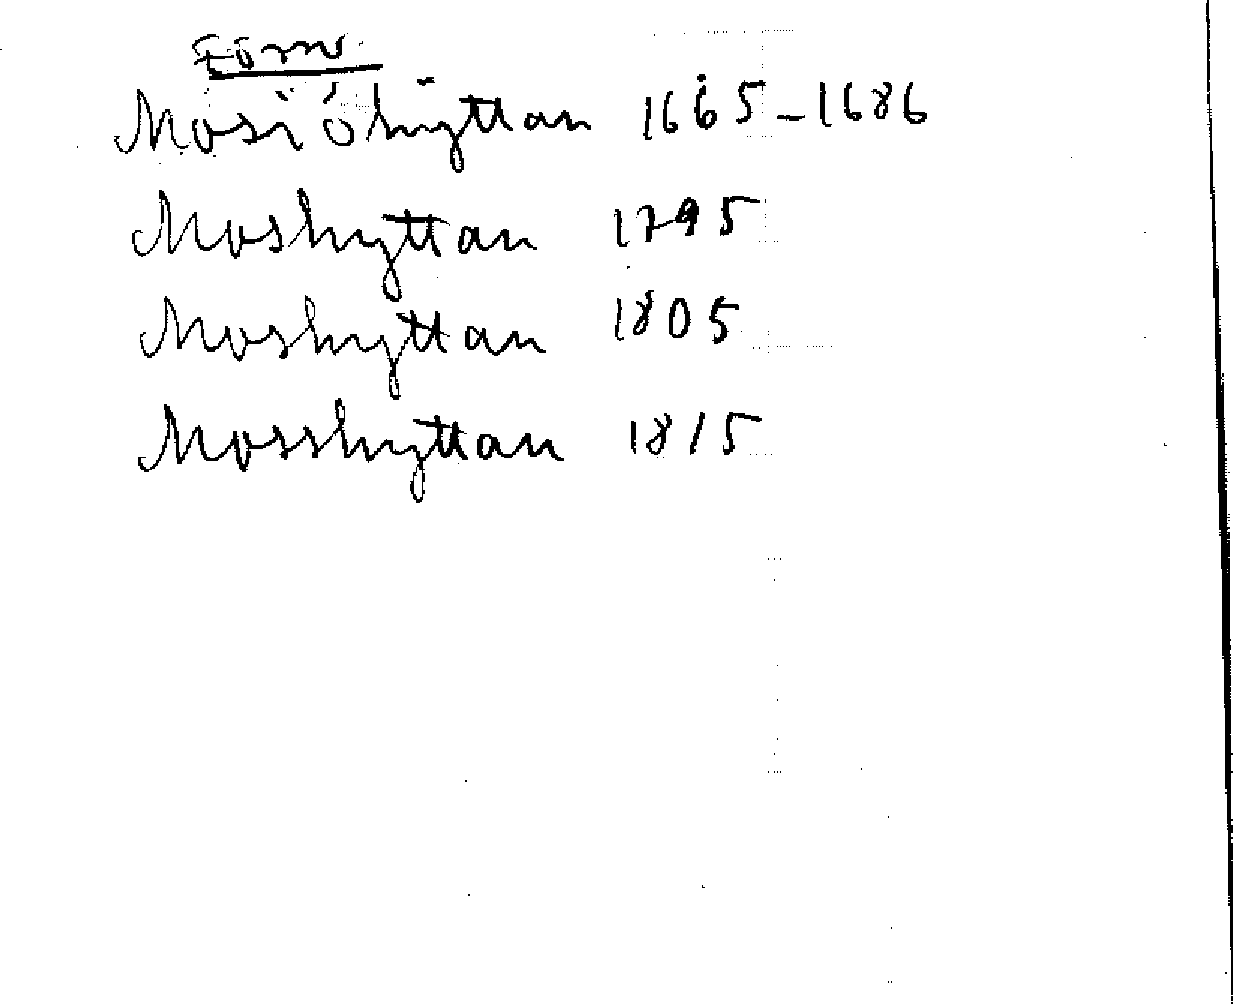 Förr
Mosjöhyttan 1665-1686
Moshyttan 1795
Moshyttan 1805
Mosshyttan 1815